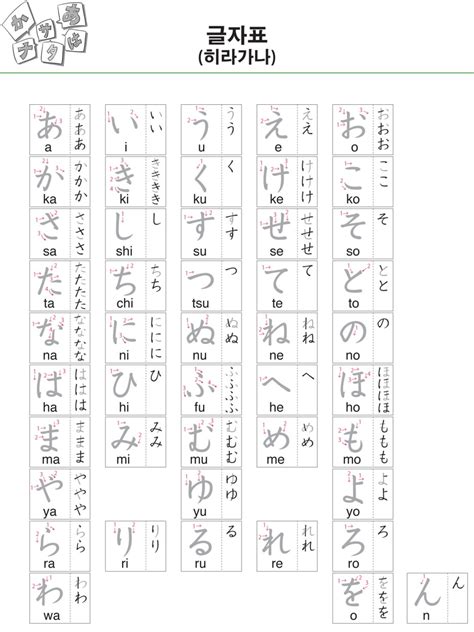 か サ あ
ナ タ は
글자표
(히라가나)
あ あああ い いい う うう え ええ お おおお
a i u e o
か かかか き きききき く く け けけけ こ ここ
ka ki ku ke ko
さ さささ し し す すす せ せせせ そ そ
sa shi su se so
た たたたた ち ちち つ つ て て と とと
ta chi tsu te to
な なななな に にににに ぬ ぬぬ ね ねね の の
na ni nu ne no
は ははは ひ ひ ふ ふふふふ へ へ ほ ほほほほ
ha hi fu he ho
ま ままま み みみ む むむむ め めめ も ももも
ma mi mu me mo
や ややや ゆ ゆゆ よ よよ
ya yu yo
ら らら り りり る る れ れれ ろ ろ
ra ri ru re ro
わ わわ を ををを ん ん
wa o n